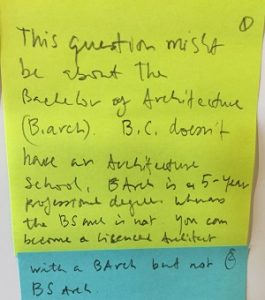 ①
This question might
be about the
Bachelor of Architecture
(B.arch). B.C. doesn't
have an Architecture
School. BArch is a 5-year
professional degree whereas
the BS Arch is not. You can
become a licensed Architect
with a BArch but not ②
BS Arch